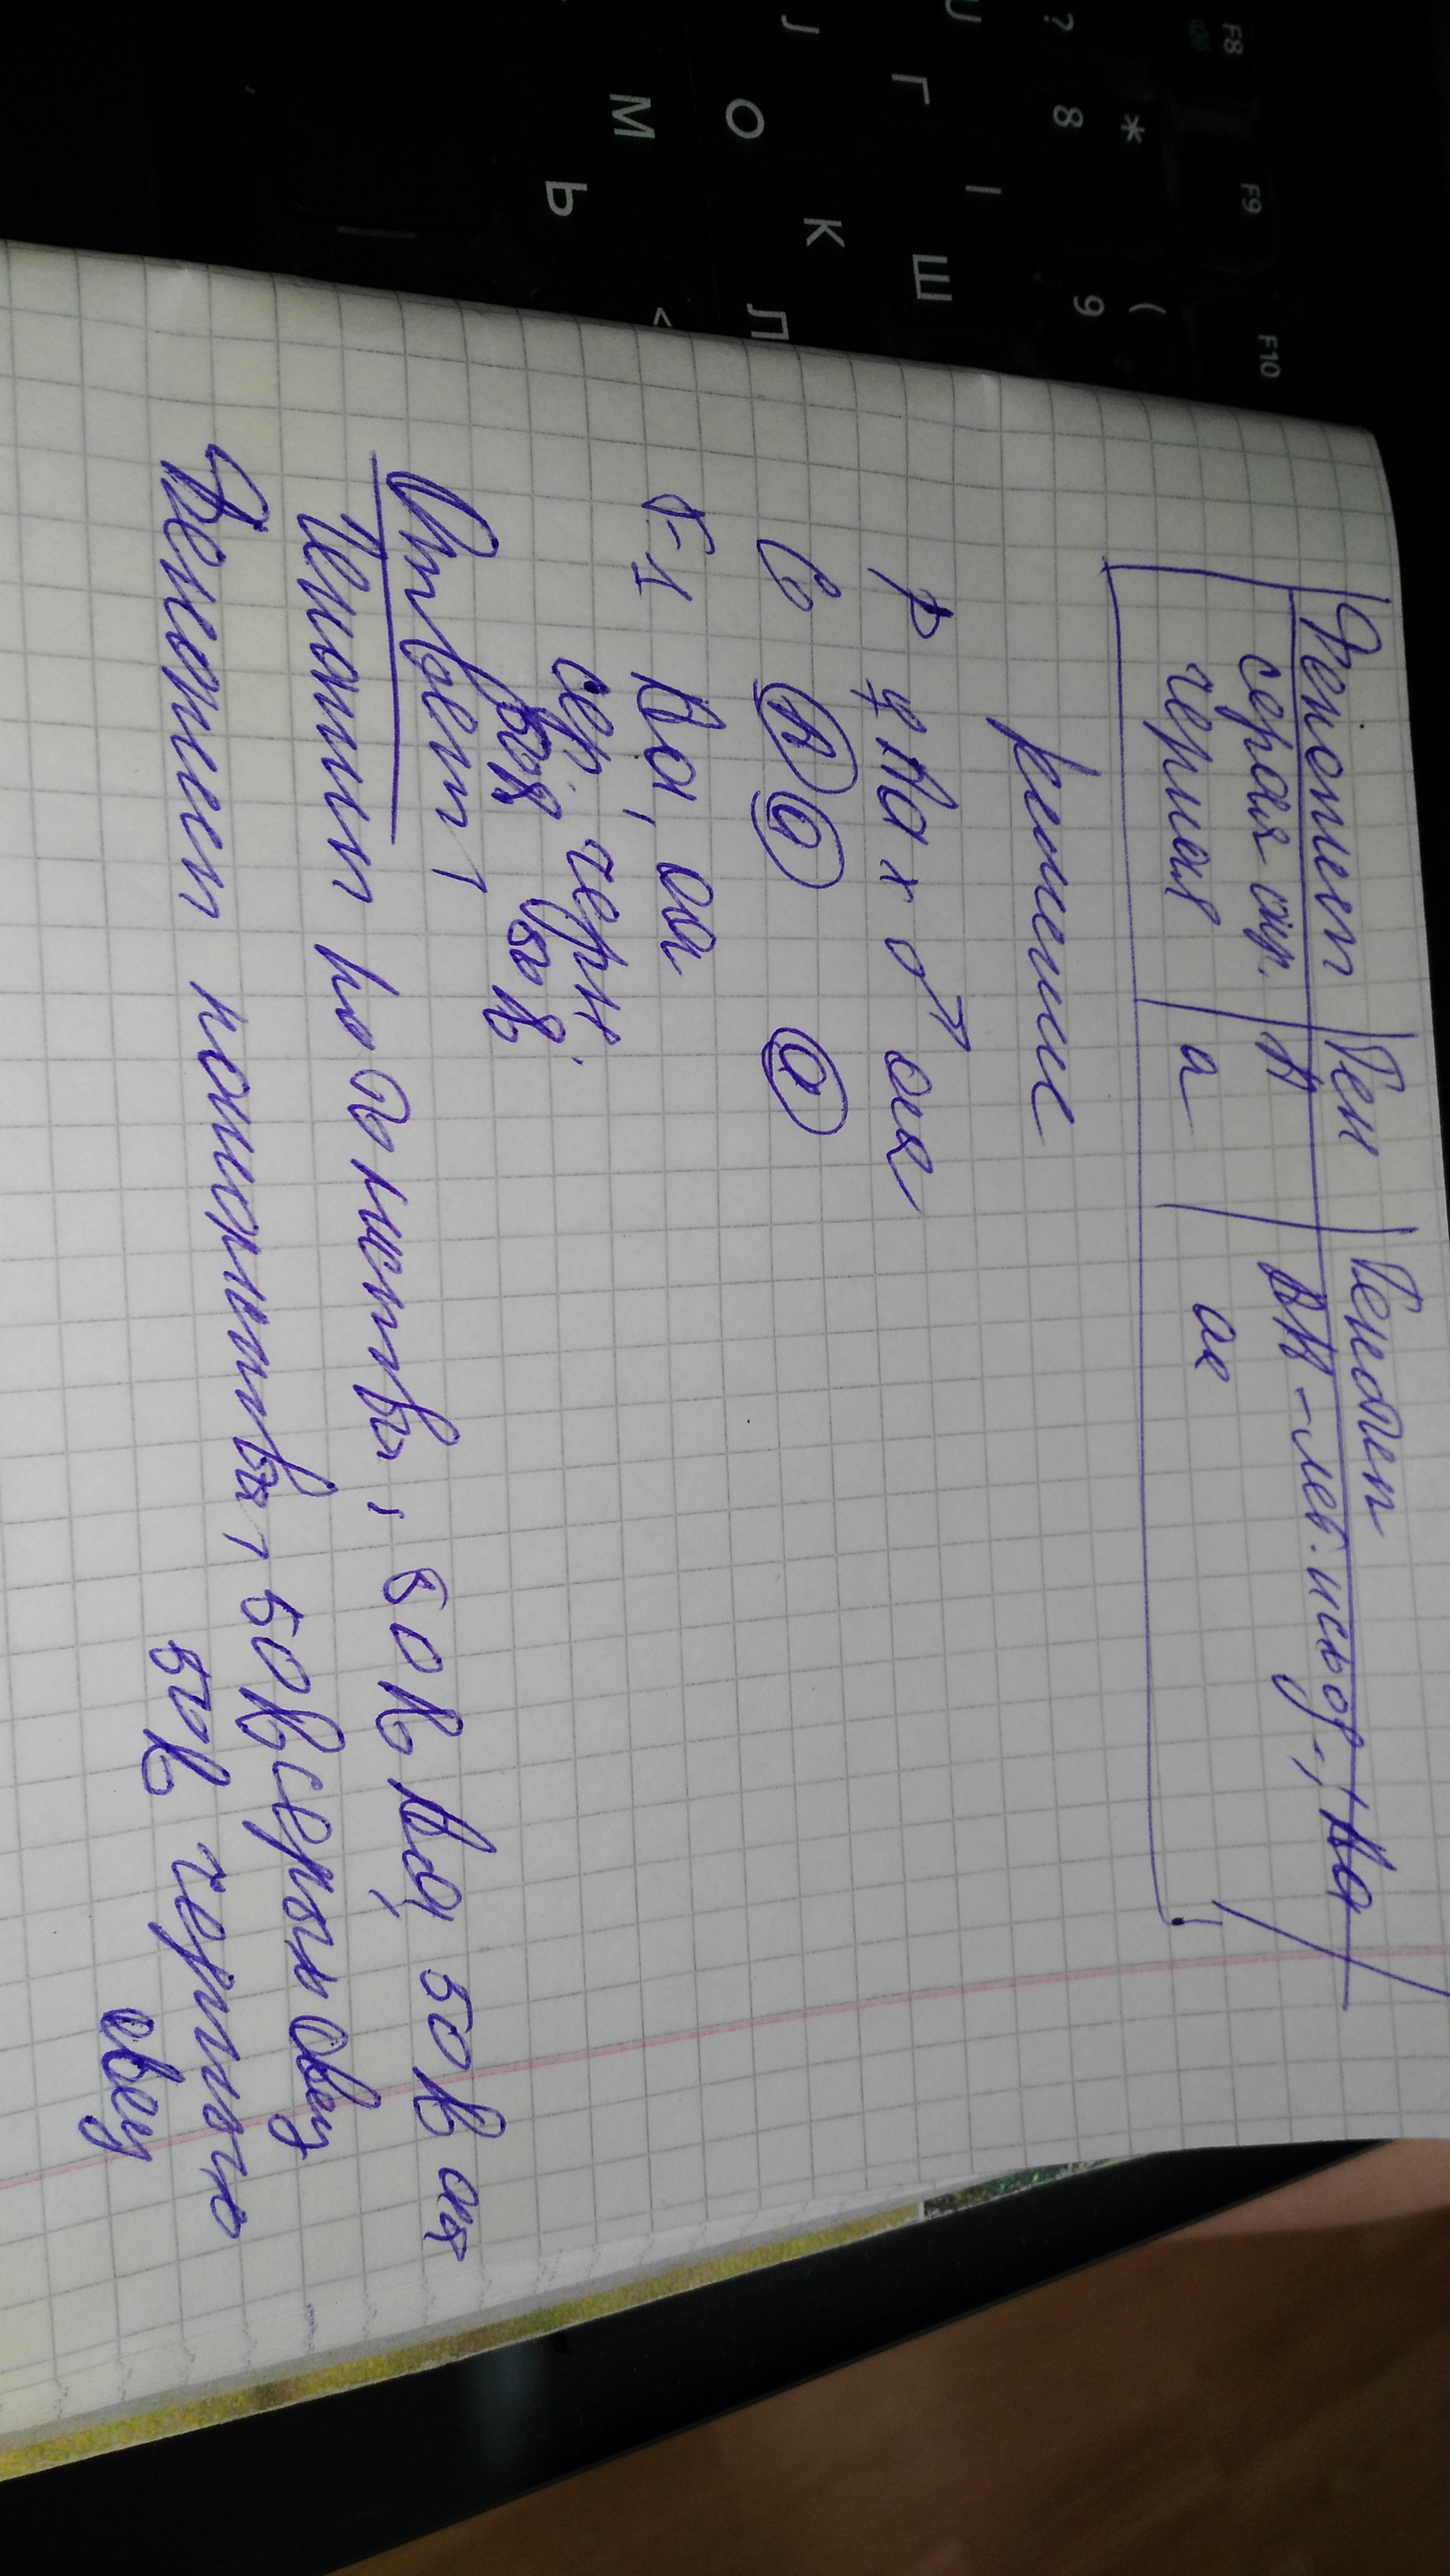 Фенотип | Ген | Генотип
серая окр. | А | АА - лет. исход, Аа
черная | а | аа
Решение
P ♀ Аа х ♂ аа
G А а а
F1 Аа, аа
сер. черн.
50% 50%
Ответ:
Генотип потомства, 50% Аа, 50% аа
Фенотип потомства, 50% серых овец
50% черных
овец
F8
F9
F10
? * (
8 9
U Г I Ш
J О K Л
М Ь <